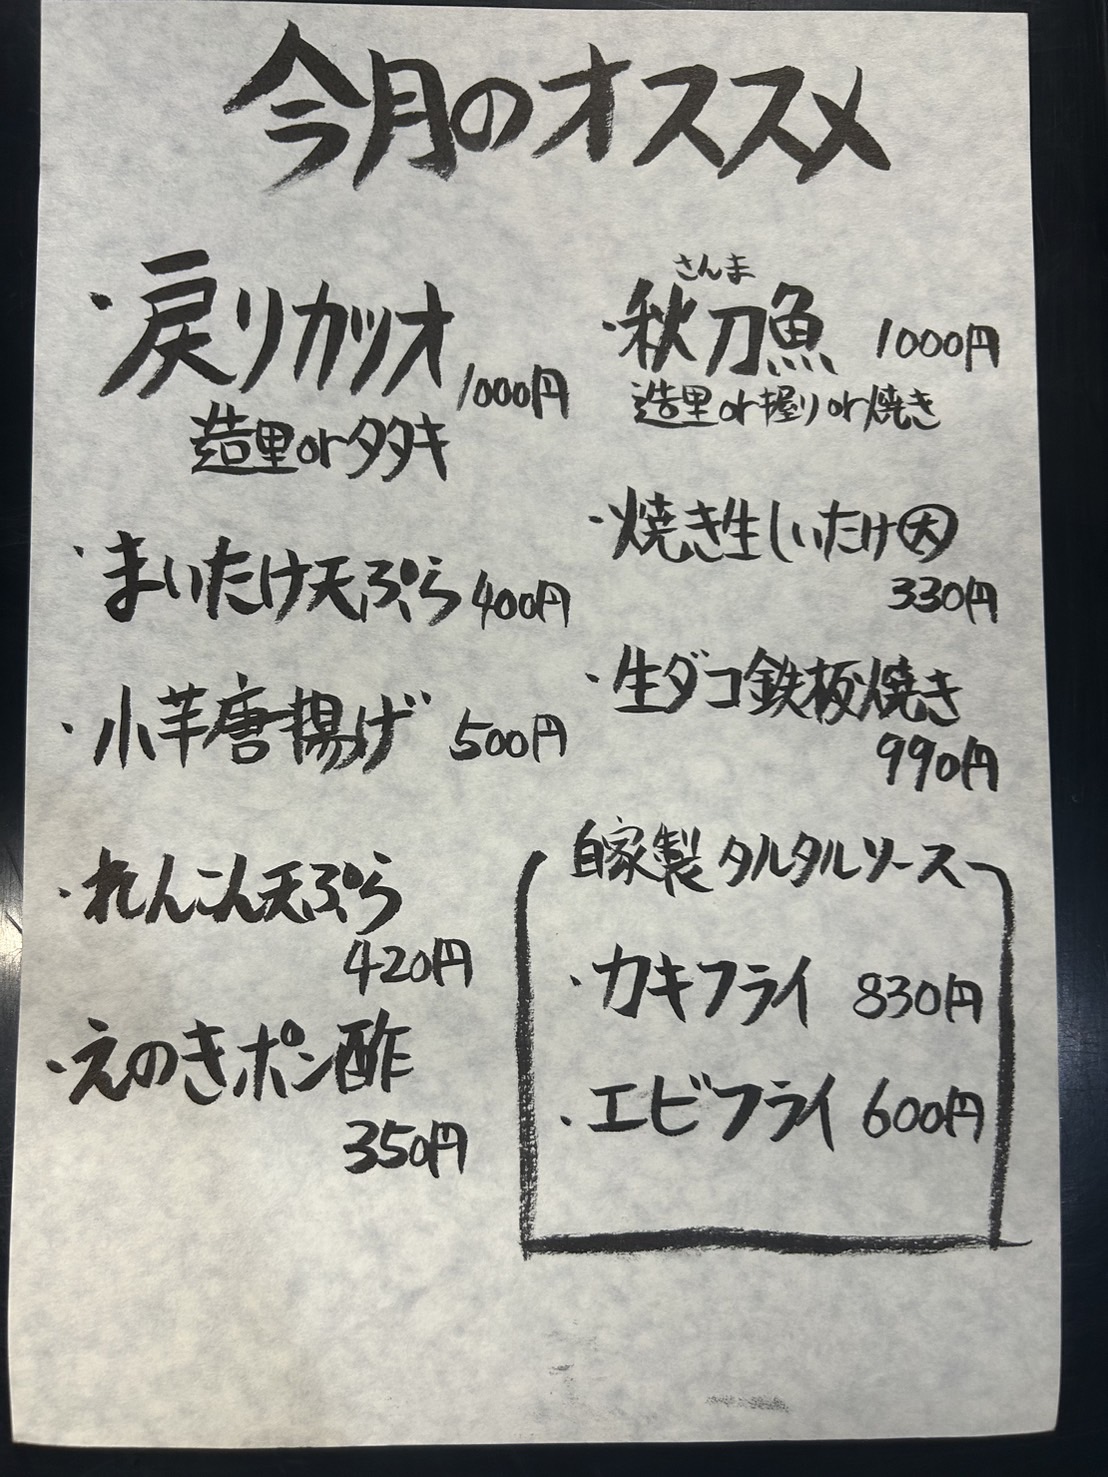 今月のオススメ
・戻りカツオ
1000円
造里orタタキ
・まいたけ天ぷら 400円
・小芋唐揚げ 500円
・れんこん天ぷら
420円
・えのきポン酢
350円
さんま
・秋刀魚 1000円
造里or握りor焼き
・焼き生しいたけ大
330円
・生ダコ鉄板焼き
990円
自家製タルタルソース
・カキフライ 830円
・エビフライ 600円